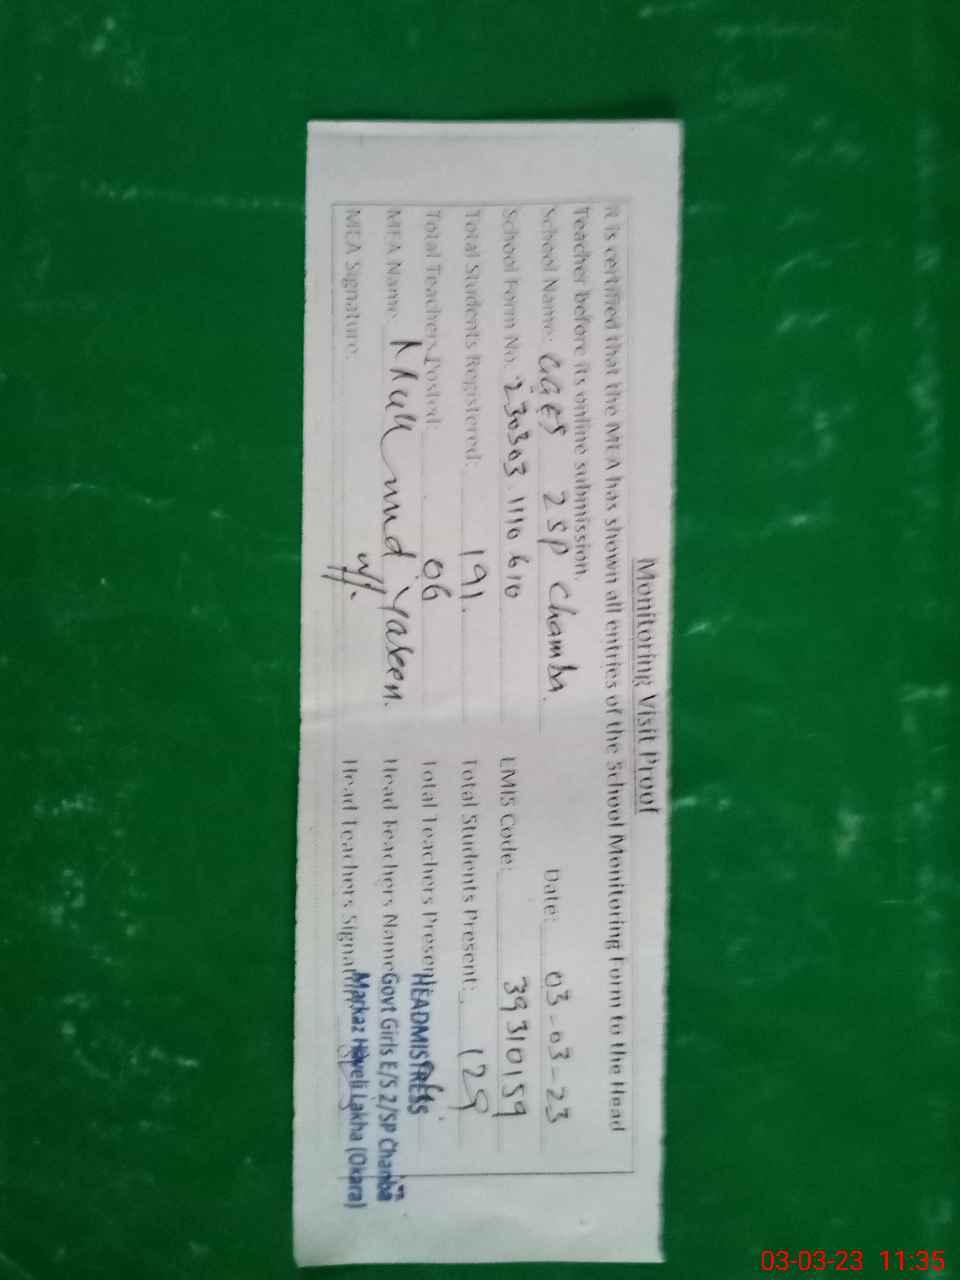 Monitoring Visit Proof
It is certified that the MEA has shown all entries of the School Monitoring Form to the Head
Teacher before its online submission.
School Name: GGES 2SP Chamba. Date: 03-03-23
School Form No. 230303 1110 610 EMIS Code: 39310159
Total Students Registered: 191. Total Students Present: 129
Total Teachers Posted: 06 Total Teachers Present
MEA Name: Yaseen. Head Teachers Name
MEA Signature: Head Teachers Signat
HEADMISTRESS
Govt Girls E/S 2/SP Chanba
Markaz Haveli Lakha (Okara)
03-03-23 11:35